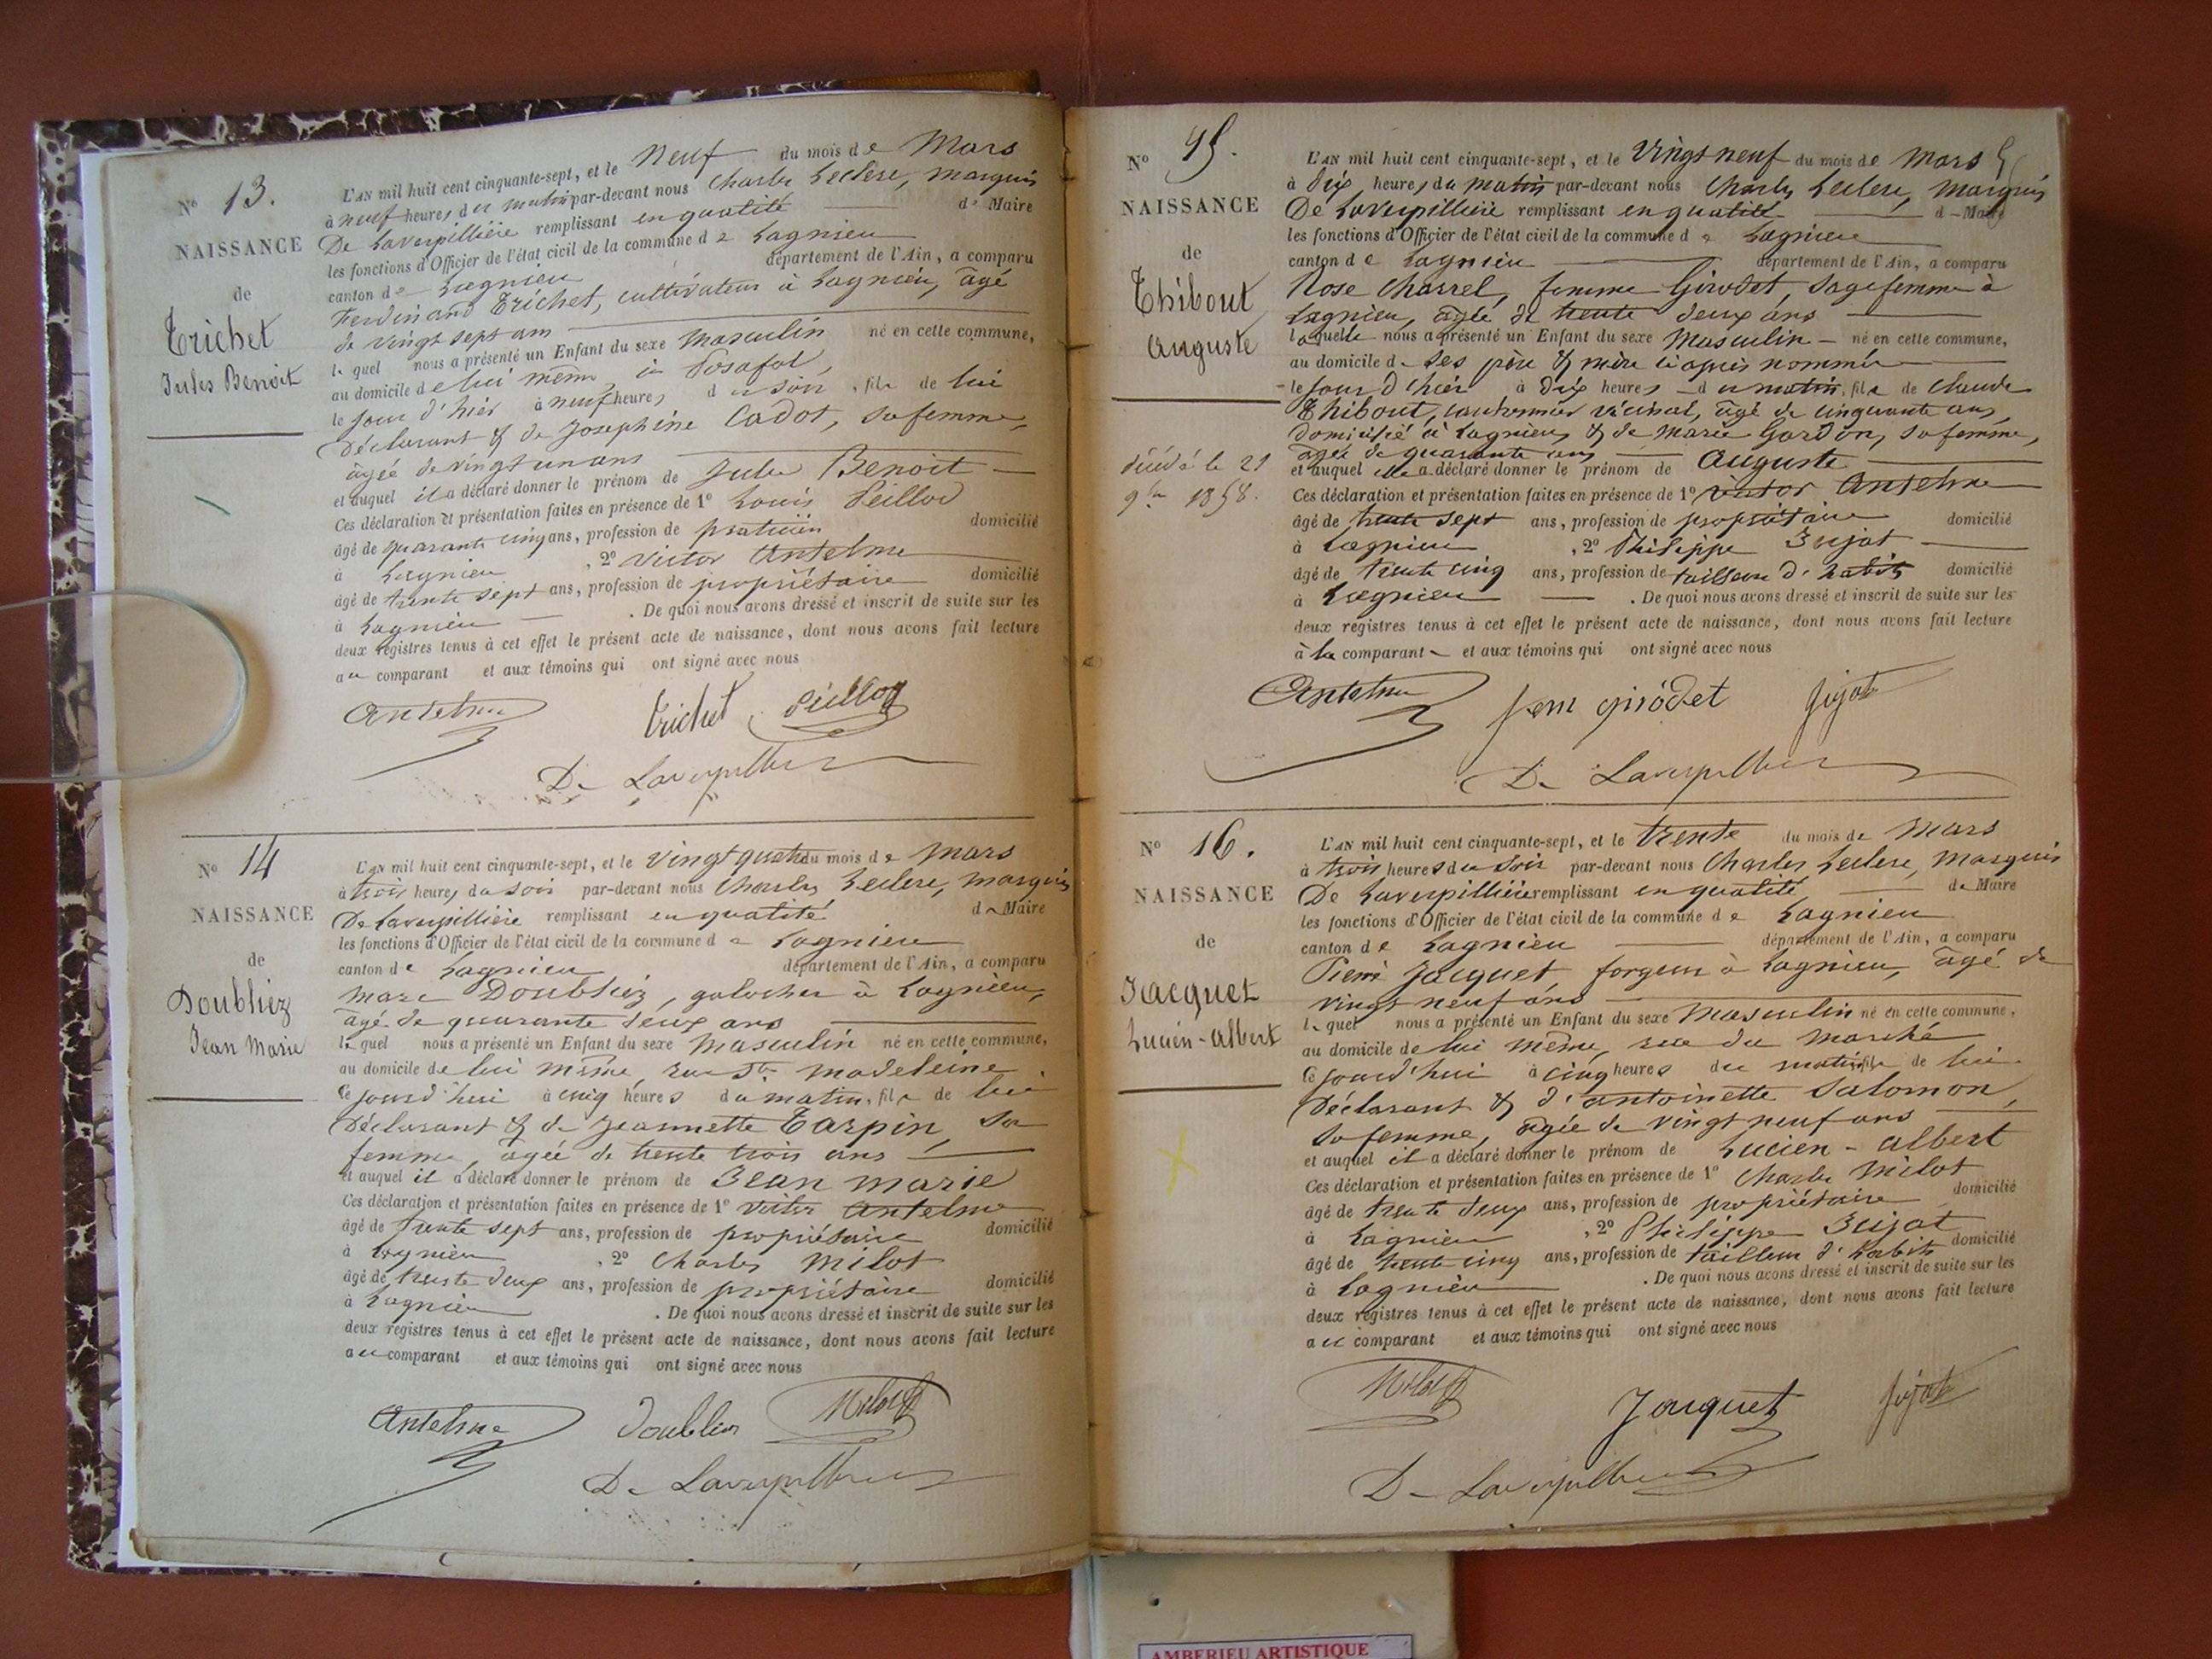 N° 13.
NAISSANCE
de
Trichet
Jules Benoit
L'AN mil huit cent cinquante-sept, et le Neuf du mois de Mars
à neuf heures du matin par-devant nous Charles Leclerc, Marquis
De Laverpillière remplissant en qualité de Maire
les fonctions d'Officier de l'état civil de la commune de Lagnieu
canton de Lagnieu département de l'Ain, a comparu
Ferdinand Trichet, cultivateur à Lagnieu, âgé
de vingt sept ans
lequel nous a présenté un Enfant du sexe Masculin né en cette commune,
au domicile de lui même, à Posafol,
le jour d'hier à neuf heures du soir, fils de lui
Déclarant & de Joséphine Cadot, sa femme,
âgée de vingt un ans
et auquel il a déclaré donner le prénom de Jules Benoit
Ces déclaration et présentation faites en présence de 1° Louis Peillod
âgé de quarante cinq ans, profession de praticien domicilié
à Lagnieu, 2° Victor Anselme
âgé de trente sept ans, profession de propriétaire domicilié
à Lagnieu. De quoi nous avons dressé et inscrit de suite sur les
deux registres tenus à cet effet le présent acte de naissance, dont nous avons fait lecture
au comparant et aux témoins qui ont signé avec nous
Anselme Trichet Peillod
De Laverpilliere
N° 14
NAISSANCE
de
Doubliez
Jean Marie
L'AN mil huit cent cinquante-sept, et le Vingt quatre du mois de Mars
à trois heures du soir par-devant nous Charles Leclerc, Marquis
De Laverpillière remplissant en qualité de Maire
les fonctions d'Officier de l'état civil de la commune de Lagnieu
canton de Lagnieu département de l'Ain, a comparu
Marc Doubliez, galocher à Lagnieu,
âgé de quarante deux ans
lequel nous a présenté un Enfant du sexe Masculin né en cette commune,
au domicile de lui même, rue Ste Madeleine
ce jourd'hui à cinq heures du matin, fils de lui
Déclarant & de Jeannette Tarpin, sa
femme, âgée de trente trois ans
et auquel il a déclaré donner le prénom de Jean Marie
Ces déclaration et présentation faites en présence de 1° Victor Anselme
âgé de trente sept ans, profession de propriétaire domicilié
à Lagnieu, 2° Charles Milot
âgé de trente deux ans, profession de propriétaire domicilié
à Lagnieu. De quoi nous avons dressé et inscrit de suite sur les
deux registres tenus à cet effet le présent acte de naissance, dont nous avons fait lecture
au comparant et aux témoins qui ont signé avec nous
Anselme Doublier Milot
De Laverpilliere
N° 15.
NAISSANCE
de
Thibout
Auguste
décédé le 21
9bre 1858.
L'AN mil huit cent cinquante-sept, et le Vingt neuf du mois de Mars
à Dix heures du matin par-devant nous Charles Leclerc, Marquis
De Laverpillière remplissant en qualité de Maire
les fonctions d'Officier de l'état civil de la commune de Lagnieu
canton de Lagnieu département de l'Ain, a comparu
Rose Charrel, femme Girodet, sagefemme à
Lagnieu, âgée de trente deux ans
laquelle nous a présenté un Enfant du sexe Masculin né en cette commune,
au domicile de ses père & mère ci après nommés
le jour d'hier à Dix heures du matin, fils de Claude
Thibout, cantonnier vicinal, âgé de cinquante ans,
domicilié à Lagnieu & de Marie Gardon, sa femme,
âgée de quarante ans
et auquel elle a déclaré donner le prénom de Auguste
Ces déclaration et présentation faites en présence de 1° Victor Anselme
âgé de trente sept ans, profession de propriétaire domicilié
à Lagnieu, 2° Philippe Jujat
âgé de trente cinq ans, profession de tailleur d'habits domicilié
à Lagnieu. De quoi nous avons dressé et inscrit de suite sur les
deux registres tenus à cet effet le présent acte de naissance, dont nous avons fait lecture
à la comparante et aux témoins qui ont signé avec nous
Anselme fem girodet Jujat
De Laverpilliere
N° 16.
NAISSANCE
de
Jacquet
Lucien-Albert
L'AN mil huit cent cinquante-sept, et le trente du mois de Mars
à trois heures du soir par-devant nous Charles Leclerc, Marquis
De Laverpillière remplissant en qualité de Maire
les fonctions d'Officier de l'état civil de la commune de Lagnieu
canton de Lagnieu département de l'Ain, a comparu
Pierre Jacquet, forgeur à Lagnieu, âgé de
vingt neuf ans
lequel nous a présenté un Enfant du sexe Masculin né en cette commune,
au domicile de lui même, rue du Marché
ce jourd'hui à cinq heures du matin, fils de lui
Déclarant & d'Antoinette Salomon,
sa femme, âgée de vingt neuf ans
et auquel il a déclaré donner le prénom de Lucien-Albert
Ces déclaration et présentation faites en présence de 1° Charles Milot
âgé de trente deux ans, profession de propriétaire domicilié
à Lagnieu, 2° Philippe Jujat
âgé de trente cinq ans, profession de tailleur d'habits domicilié
à Lagnieu. De quoi nous avons dressé et inscrit de suite sur les
deux registres tenus à cet effet le présent acte de naissance, dont nous avons fait lecture
au comparant et aux témoins qui ont signé avec nous
Milot Jacquet Jujat
De Laverpilliere
AMBERIEU ARTISTIQUE